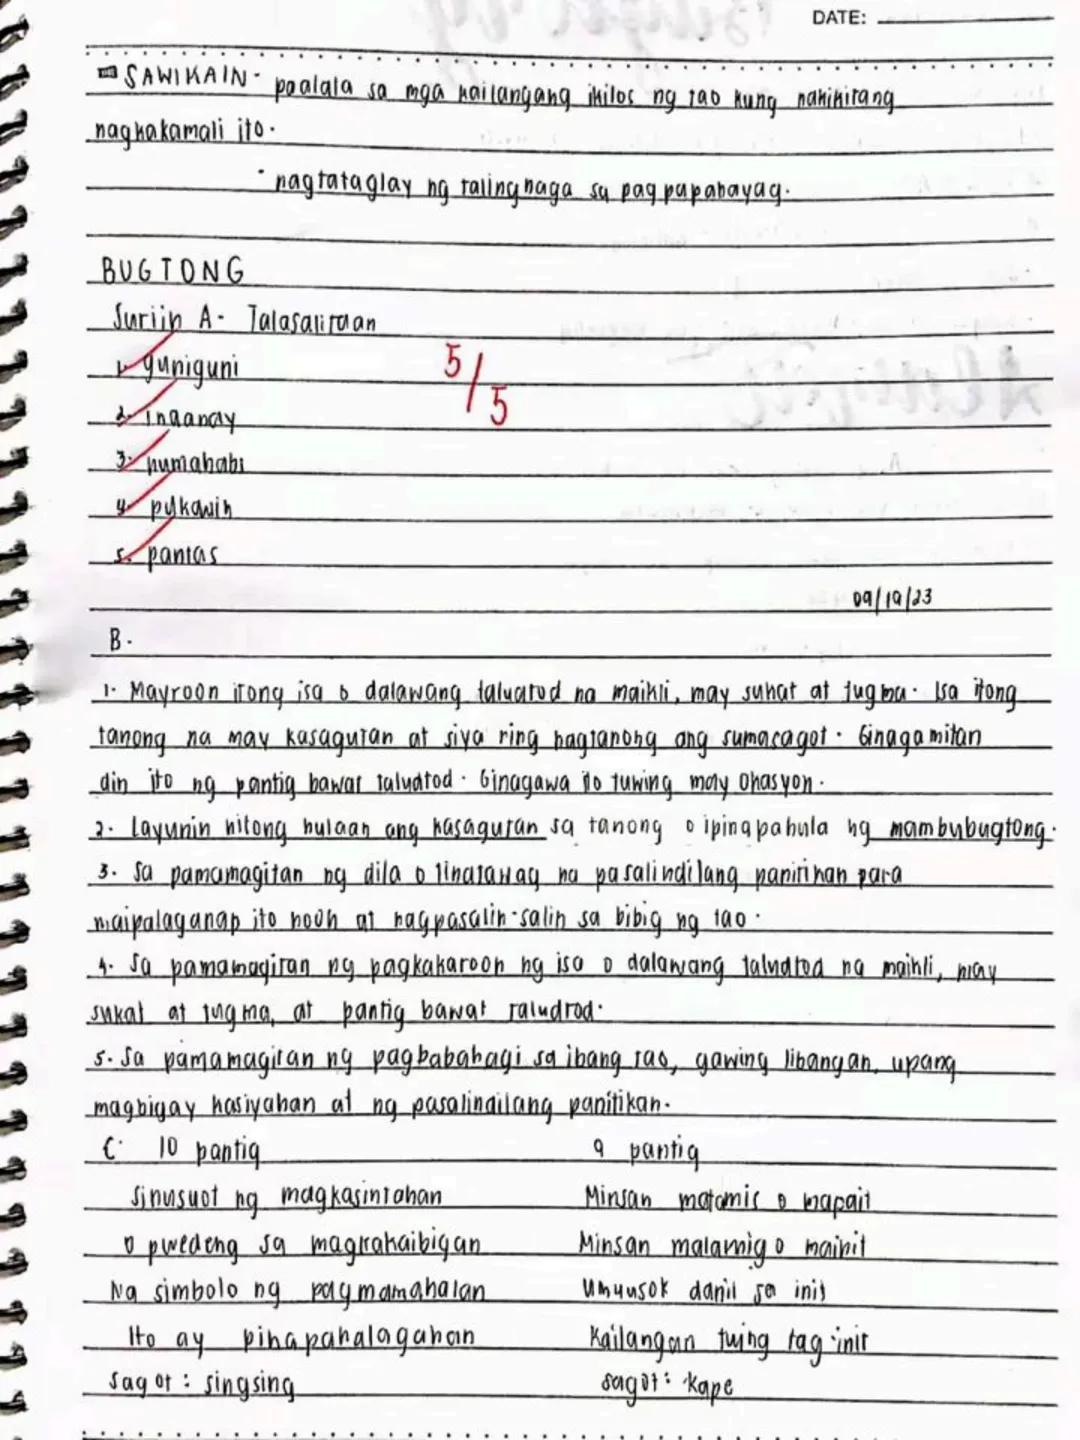 DATE:
SAWIKAIN - paalala sa mga kailangang ikilos ng tao kung nakikitang
nagkakamali ito.
• nagtataglay ng talinghaga sa pagpapahayag.
BUGTONG
Suriin A. Talasalitaan
1. guniguni
2. inaanay
3. humahabi
4. pukawin
5. pantas
5/5
09/19/23
B.
1. Mayroon itong isa o dalawang taludtod na maikli, may sukat at tugma. Isa itong
tanong na may kasagutan at siya ring nagtanong ang sumasagot. Ginagamitan
din ito ng pantig bawat taludtod. Ginagawa ito tuwing may okasyon.
2. Layunin nitong hulaan ang kasagutan sa tanong o ipinapahula ng mambubugtong.
3. Sa pamamagitan ng dila o tinatawag na pasalindilang panitikan para
maipalaganap ito noon at nagpasalin-salin sa bibig ng tao.
4. Sa pamamagitan ng pagkakaroon ng isa o dalawang taludtod na maikli, may
sukat at tugma, at pantig bawat taludtod.
5. Sa pamamagitan ng pagbabahagi sa ibang tao, gawing libangan, upang
magbigay kasiyahan at ng pasalindilang panitikan.
C. 10 pantig
Sinusuot ng magkasintahan
o pwedeng sa magkakaibigan
Na simbolo ng pagmamahalan
Ito ay pinapahalagahan
Sagot : singsing
9 pantig
Minsan matamis o mapait
Minsan malamig o mainit
Umuusok dahil sa init
Kailangan tuing tag-init
sagot : kape